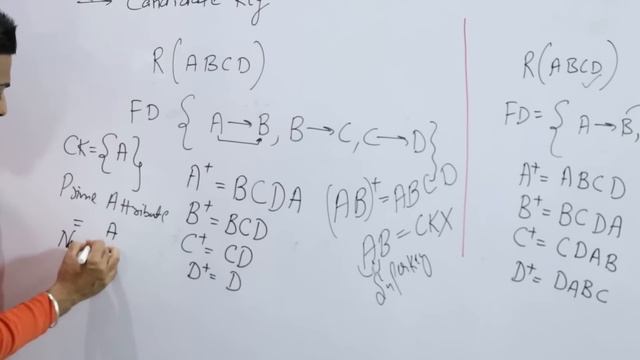 → Candidate Key
R(ABCD)
FD { A→B, B→C, C→D}
CK={A}
Prime Attribute
= A
N
A⁺ = BCDA
B⁺ = BCD
C⁺ = CD
D⁺ = D
(AB)⁺ = ABCD
AB = CKX
Superkey
R(ABCD)
FD = { A→B,
A⁺ = ABCD
B⁺ = BCDA
C⁺ = CDAB
D⁺ = DABC